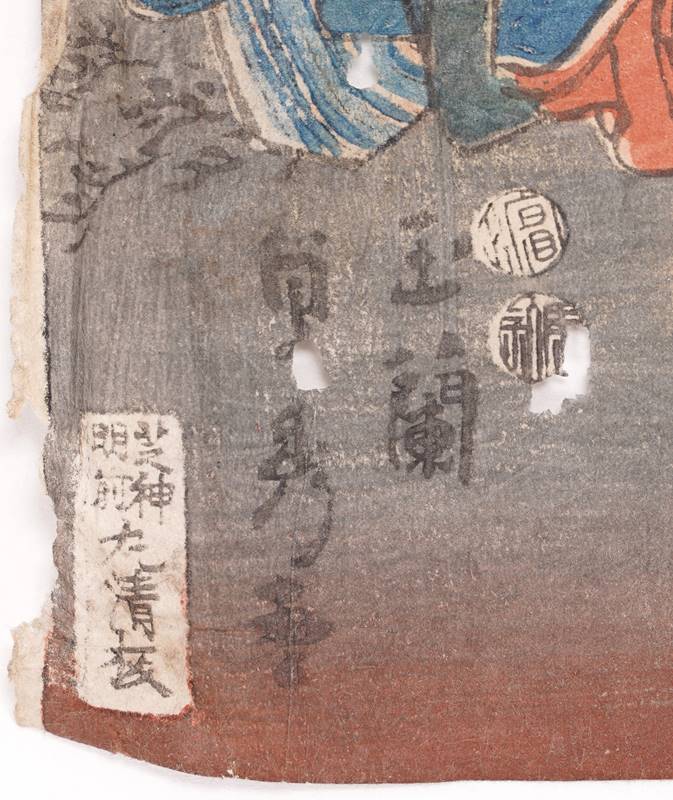 玉蘭
貞秀画
芝神
明前
丸清板